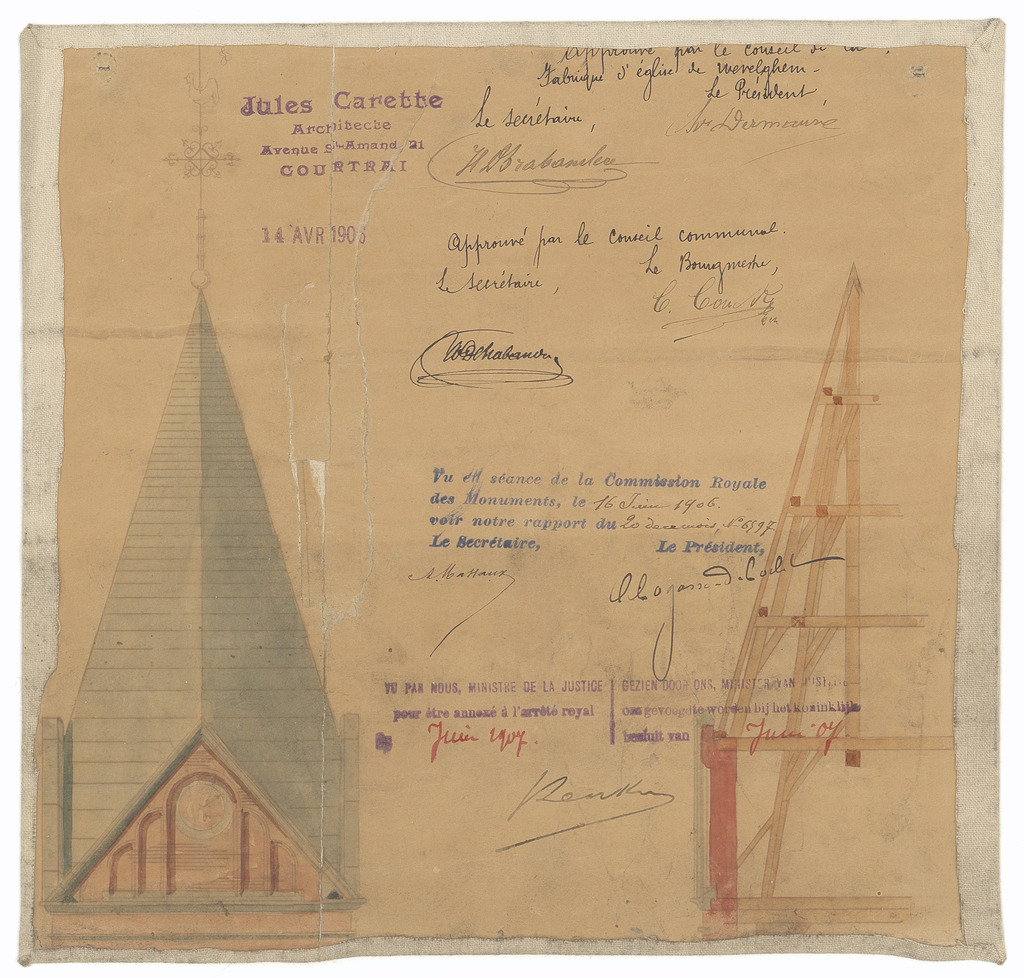 Approuvé par le conseil de la
Fabrique d'église de Wevelghem.
Le Président,
Le secrétaire,
Jules Carette
Architecte
Avenue St-Amand, 21
COURTRAI
14 AVR 1906
Approuvé par le conseil communal.
Le Bourgmestre,
Le secrétaire,
Vu en séance de la Commission Royale
des Monuments, le 16 Juin 1906.
voir notre rapport du 20 de ce mois, N° 6597.
Le Secrétaire, Le Président,
VU PAR NOUS, MINISTRE DE LA JUSTICE
pour être annexé à l'arrêté royal
Juin 1907.
GEZIEN DOOR ONS, MINISTER VAN JUSTITIE
om gevoegd te worden bij het koninklijk
besluit van Juin 07.
Renkin